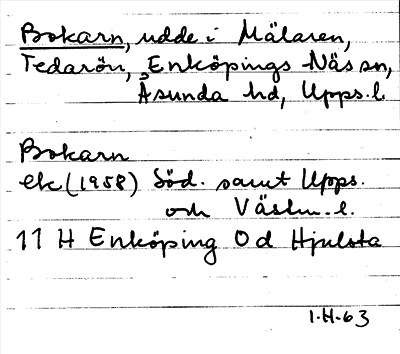 Bokarn, udde i Mälaren,
Tedarön, Enköpings Näs sn,
Åsunda hd, Upps. l.
Bokarn
ek (1958) Söd. samt Upps.
och Västm. l.
11 H Enköping 0 d Hjulsta
1.H.63